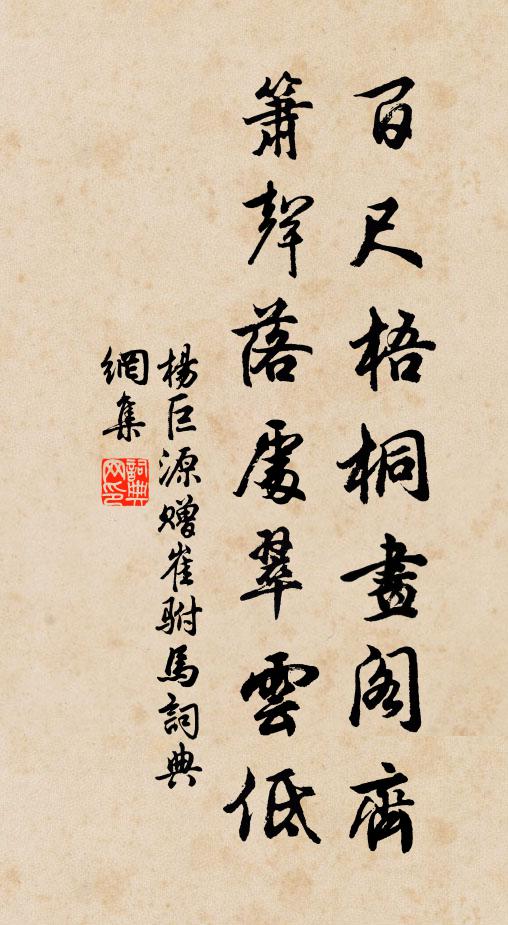 百尺梧桐畫阁齊
簫聲落處翠雲低
楊巨源赠崔駙馬詞典
網集
詞典网印